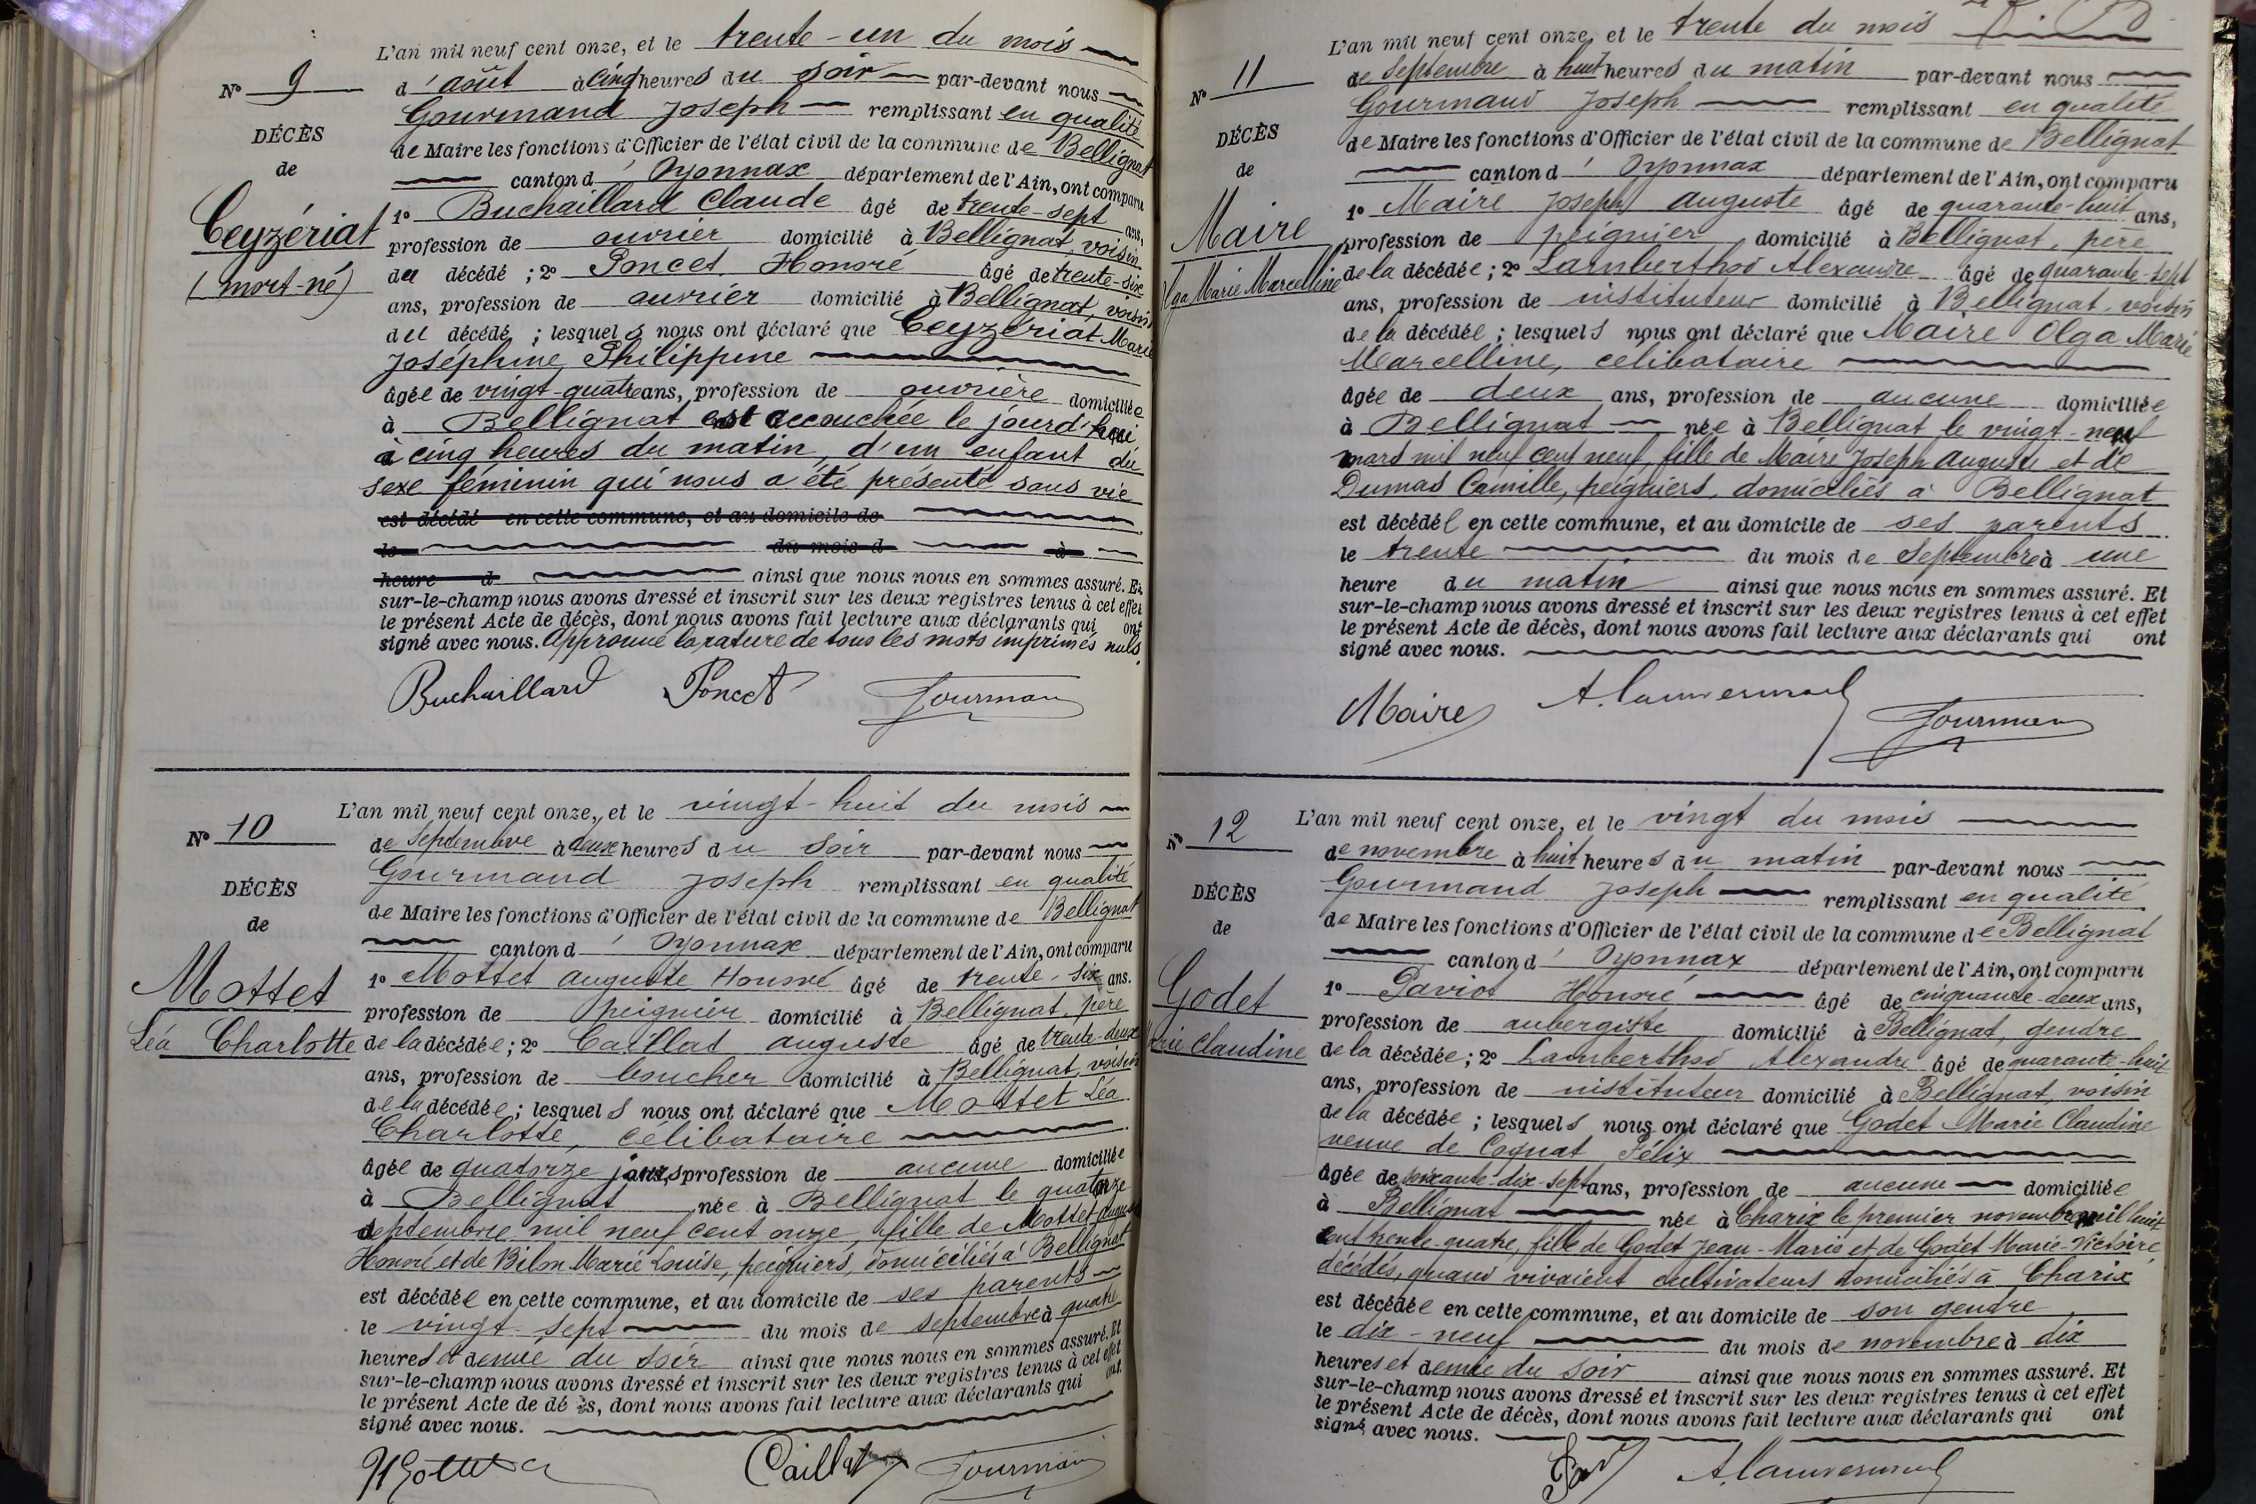 L'an mil neuf cent onze, et le trente-un du mois
N° 9
d'août à cinq heures du soir par-devant nous
Gourmand Joseph remplissant en qualité
DÉCÈS
de Maire les fonctions d'Officier de l'état civil de la commune de Bellignat
de
canton d'Oyonnax département de l'Ain, ont comparu
Ceyzériat
1° Buchaillard Claude âgé de trente-sept ans,
profession de ouvrier domicilié à Bellignat, voisin
(mort-né)
du décédé ; 2° Poncet Honoré âgé de trente-six
ans, profession de ouvrier domicilié à Bellignat, voisin
du décédé ; lesquels nous ont déclaré que Ceyzériat Marie
Joséphine Philippine
âgée de vingt-quatre ans, profession de ouvrière domiciliée
à Bellignat est accouchée le jourd'hui
à cinq heures du matin, d'un enfant du
sexe féminin qui nous a été présenté sans vie
est décédé en cette commune, et au domicile de
le du mois d à
heure d ainsi que nous nous en sommes assuré. Et
sur-le-champ nous avons dressé et inscrit sur les deux registres tenus à cet effet
le présent Acte de décès, dont nous avons fait lecture aux déclarants qui ont
signé avec nous. Approuvé la rature de tous les mots imprimés nuls.
Buchaillard Poncet Gourmand
L'an mil neuf cent onze, et le vingt-huit du mois
N° 10
de septembre à deux heures du soir par-devant nous
Gourmand Joseph remplissant en qualité
DÉCÈS
de Maire les fonctions d'Officier de l'état civil de la commune de Bellignat
de
canton d'Oyonnax département de l'Ain, ont comparu
Mottet
1° Mottet Auguste Honoré âgé de trente-six ans.
profession de peignier domicilié à Bellignat, père
Léa Charlotte
de la décédée ; 2° Caillat Auguste âgé de trente-deux
ans, profession de boucher domicilié à Bellignat, voisin
de la décédée ; lesquels nous ont déclaré que Mottet Léa
Charlotte, célibataire
âgée de quatorze jours, profession de aucune domiciliée
à Bellignat née à Bellignat le quatorze
septembre mil neuf cent onze, fille de Mottet Auguste
Honoré et de Bilon Marie Louise, peigniers, domiciliés à Bellignat
est décédée en cette commune, et au domicile de ses parents
le vingt-sept du mois de septembre à quatre
heures et demie du soir ainsi que nous nous en sommes assuré. Et
sur-le-champ nous avons dressé et inscrit sur les deux registres tenus à cet effet
le présent Acte de décès, dont nous avons fait lecture aux déclarants qui ont
signé avec nous.
Caillat Gourmand
L'an mil neuf cent onze, et le trente du mois
N° 11
de septembre à huit heures du matin par-devant nous
Gourmand Joseph remplissant en qualité
DÉCÈS
de Maire les fonctions d'Officier de l'état civil de la commune de Bellignat
de
canton d'Oyonnax département de l'Ain, ont comparu
Maire
1° Maire Joseph Auguste âgé de quarante-huit ans,
profession de peignier domicilié à Bellignat, père
Olga Marie Marcelline
de la décédée ; 2° Lamberthod Alexandre âgé de quarante-sept
ans, profession de instituteur domicilié à Bellignat, voisin
de la décédée ; lesquels nous ont déclaré que Maire Olga Marie
Marcelline, célibataire
âgée de deux ans, profession de aucune domiciliée
à Bellignat née à Bellignat le vingt-neuf
mars mil neuf cent neuf, fille de Maire Joseph Auguste et de
Dumas Camille, peigniers, domiciliés à Bellignat
est décédée en cette commune, et au domicile de ses parents
le trente du mois de septembre à une
heure du matin ainsi que nous nous en sommes assuré. Et
sur-le-champ nous avons dressé et inscrit sur les deux registres tenus à cet effet
le présent Acte de décès, dont nous avons fait lecture aux déclarants qui ont
signé avec nous.
Maire Gourmand
L'an mil neuf cent onze, et le vingt du mois
N° 12
de novembre à huit heures du matin par-devant nous
Gourmand Joseph remplissant en qualité
DÉCÈS
de Maire les fonctions d'Officier de l'état civil de la commune de Bellignat
de
canton d'Oyonnax département de l'Ain, ont comparu
Godet
1° Paviot Honoré âgé de cinquante-deux ans,
profession de aubergiste domicilié à Bellignat, gendre
Marie Claudine
de la décédée ; 2° Lamberthod Alexandre âgé de quarante-huit
ans, profession de instituteur domicilié à Bellignat, voisin
de la décédée ; lesquels nous ont déclaré que Godet Marie Claudine
veuve de Cognat Félix
âgée de soixante-dix-sept ans, profession de aucune domiciliée
à Bellignat née à Charix le premier novembre mil huit
cent trente-quatre, fille de Godet Jean-Marie et de Godet Marie-Victoire
décédés, quand vivaient cultivateurs domiciliés à Charix
est décédée en cette commune, et au domicile de son gendre
le dix-neuf du mois de novembre à dix
heures et demie du soir ainsi que nous nous en sommes assuré. Et
sur-le-champ nous avons dressé et inscrit sur les deux registres tenus à cet effet
le présent Acte de décès, dont nous avons fait lecture aux déclarants qui ont
signé avec nous.